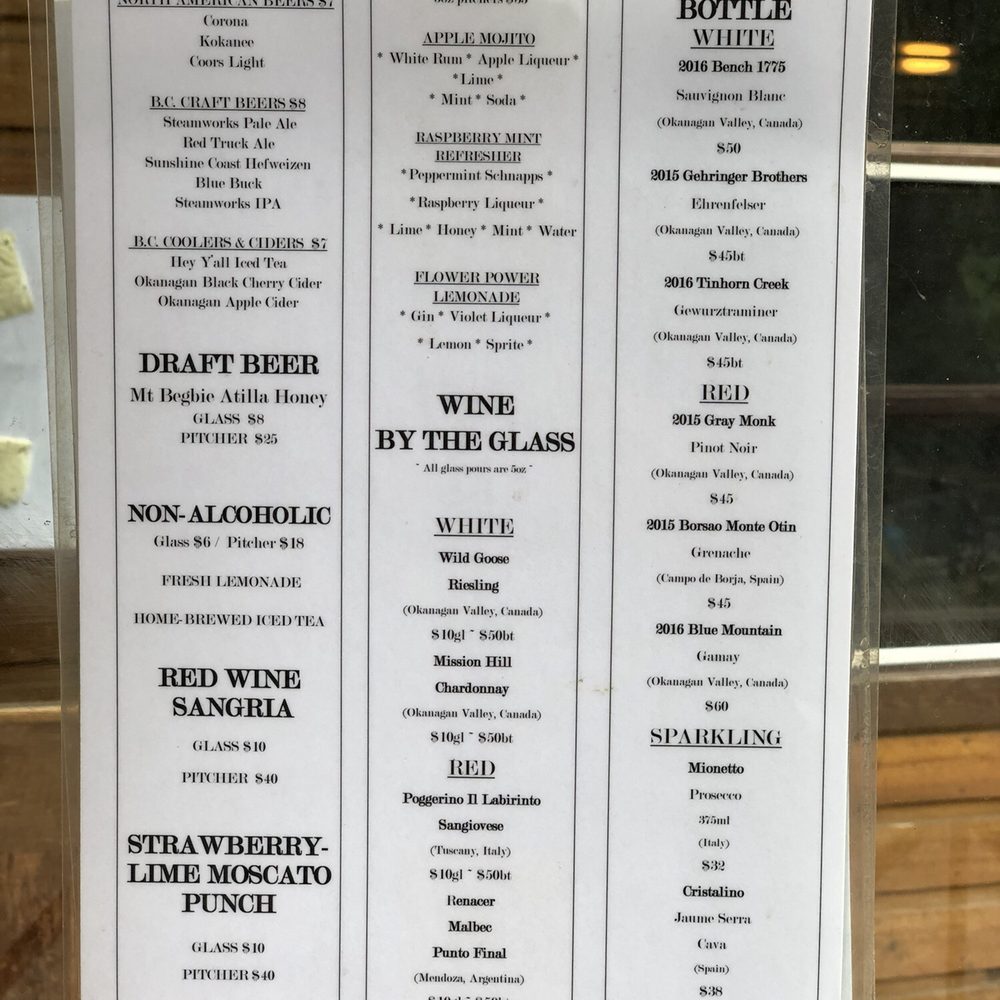 NORTH AMERICAN BEERS $7
Corona
Kokanee
Coors Light
B.C. CRAFT BEERS $8
Steamworks Pale Ale
Red Truck Ale
Sunshine Coast Hefweizen
Blue Buck
Steamworks IPA
B.C. COOLERS & CIDERS $7
Hey Y'all Iced Tea
Okanagan Black Cherry Cider
Okanagan Apple Cider
DRAFT BEER
Mt Begbie Atilla Honey
GLASS $8
PITCHER $25
NON-ALCOHOLIC
Glass $6 / Pitcher $18
FRESH LEMONADE
HOME-BREWED ICED TEA
RED WINE
SANGRIA
GLASS $10
PITCHER $40
STRAWBERRY-
LIME MOSCATO
PUNCH
GLASS $10
PITCHER $40
APPLE MOJITO
* White Rum * Apple Liqueur *
*Lime *
* Mint * Soda *
RASPBERRY MINT
REFRESHER
*Peppermint Schnapps *
*Raspberry Liqueur *
* Lime * Honey * Mint * Water
FLOWER POWER
LEMONADE
* Gin * Violet Liqueur *
* Lemon * Sprite *
WINE
BY THE GLASS
~ All glass pours are 5oz ~
WHITE
Wild Goose
Riesling
(Okanagan Valley, Canada)
$10gl ~ $50bt
Mission Hill
Chardonnay
(Okanagan Valley, Canada)
$10gl ~ $50bt
RED
Poggerino Il Labirinto
Sangiovese
(Tuscany, Italy)
$10gl ~ $50bt
Renacer
Malbec
Punto Final
(Mendoza, Argentina)
BOTTLE
WHITE
2016 Bench 1775
Sauvignon Blanc
(Okanagan Valley, Canada)
$50
2015 Gehringer Brothers
Ehrenfelser
(Okanagan Valley, Canada)
$45bt
2016 Tinhorn Creek
Gewurztraminer
(Okanagan Valley, Canada)
$45bt
RED
2015 Gray Monk
Pinot Noir
(Okanagan Valley, Canada)
$45
2015 Borsao Monte Otin
Grenache
(Campo de Borja, Spain)
$45
2016 Blue Mountain
Gamay
(Okanagan Valley, Canada)
$60
SPARKLING
Mionetto
Prosecco
375ml
(Italy)
$32
Cristalino
Jaume Serra
Cava
(Spain)
$38